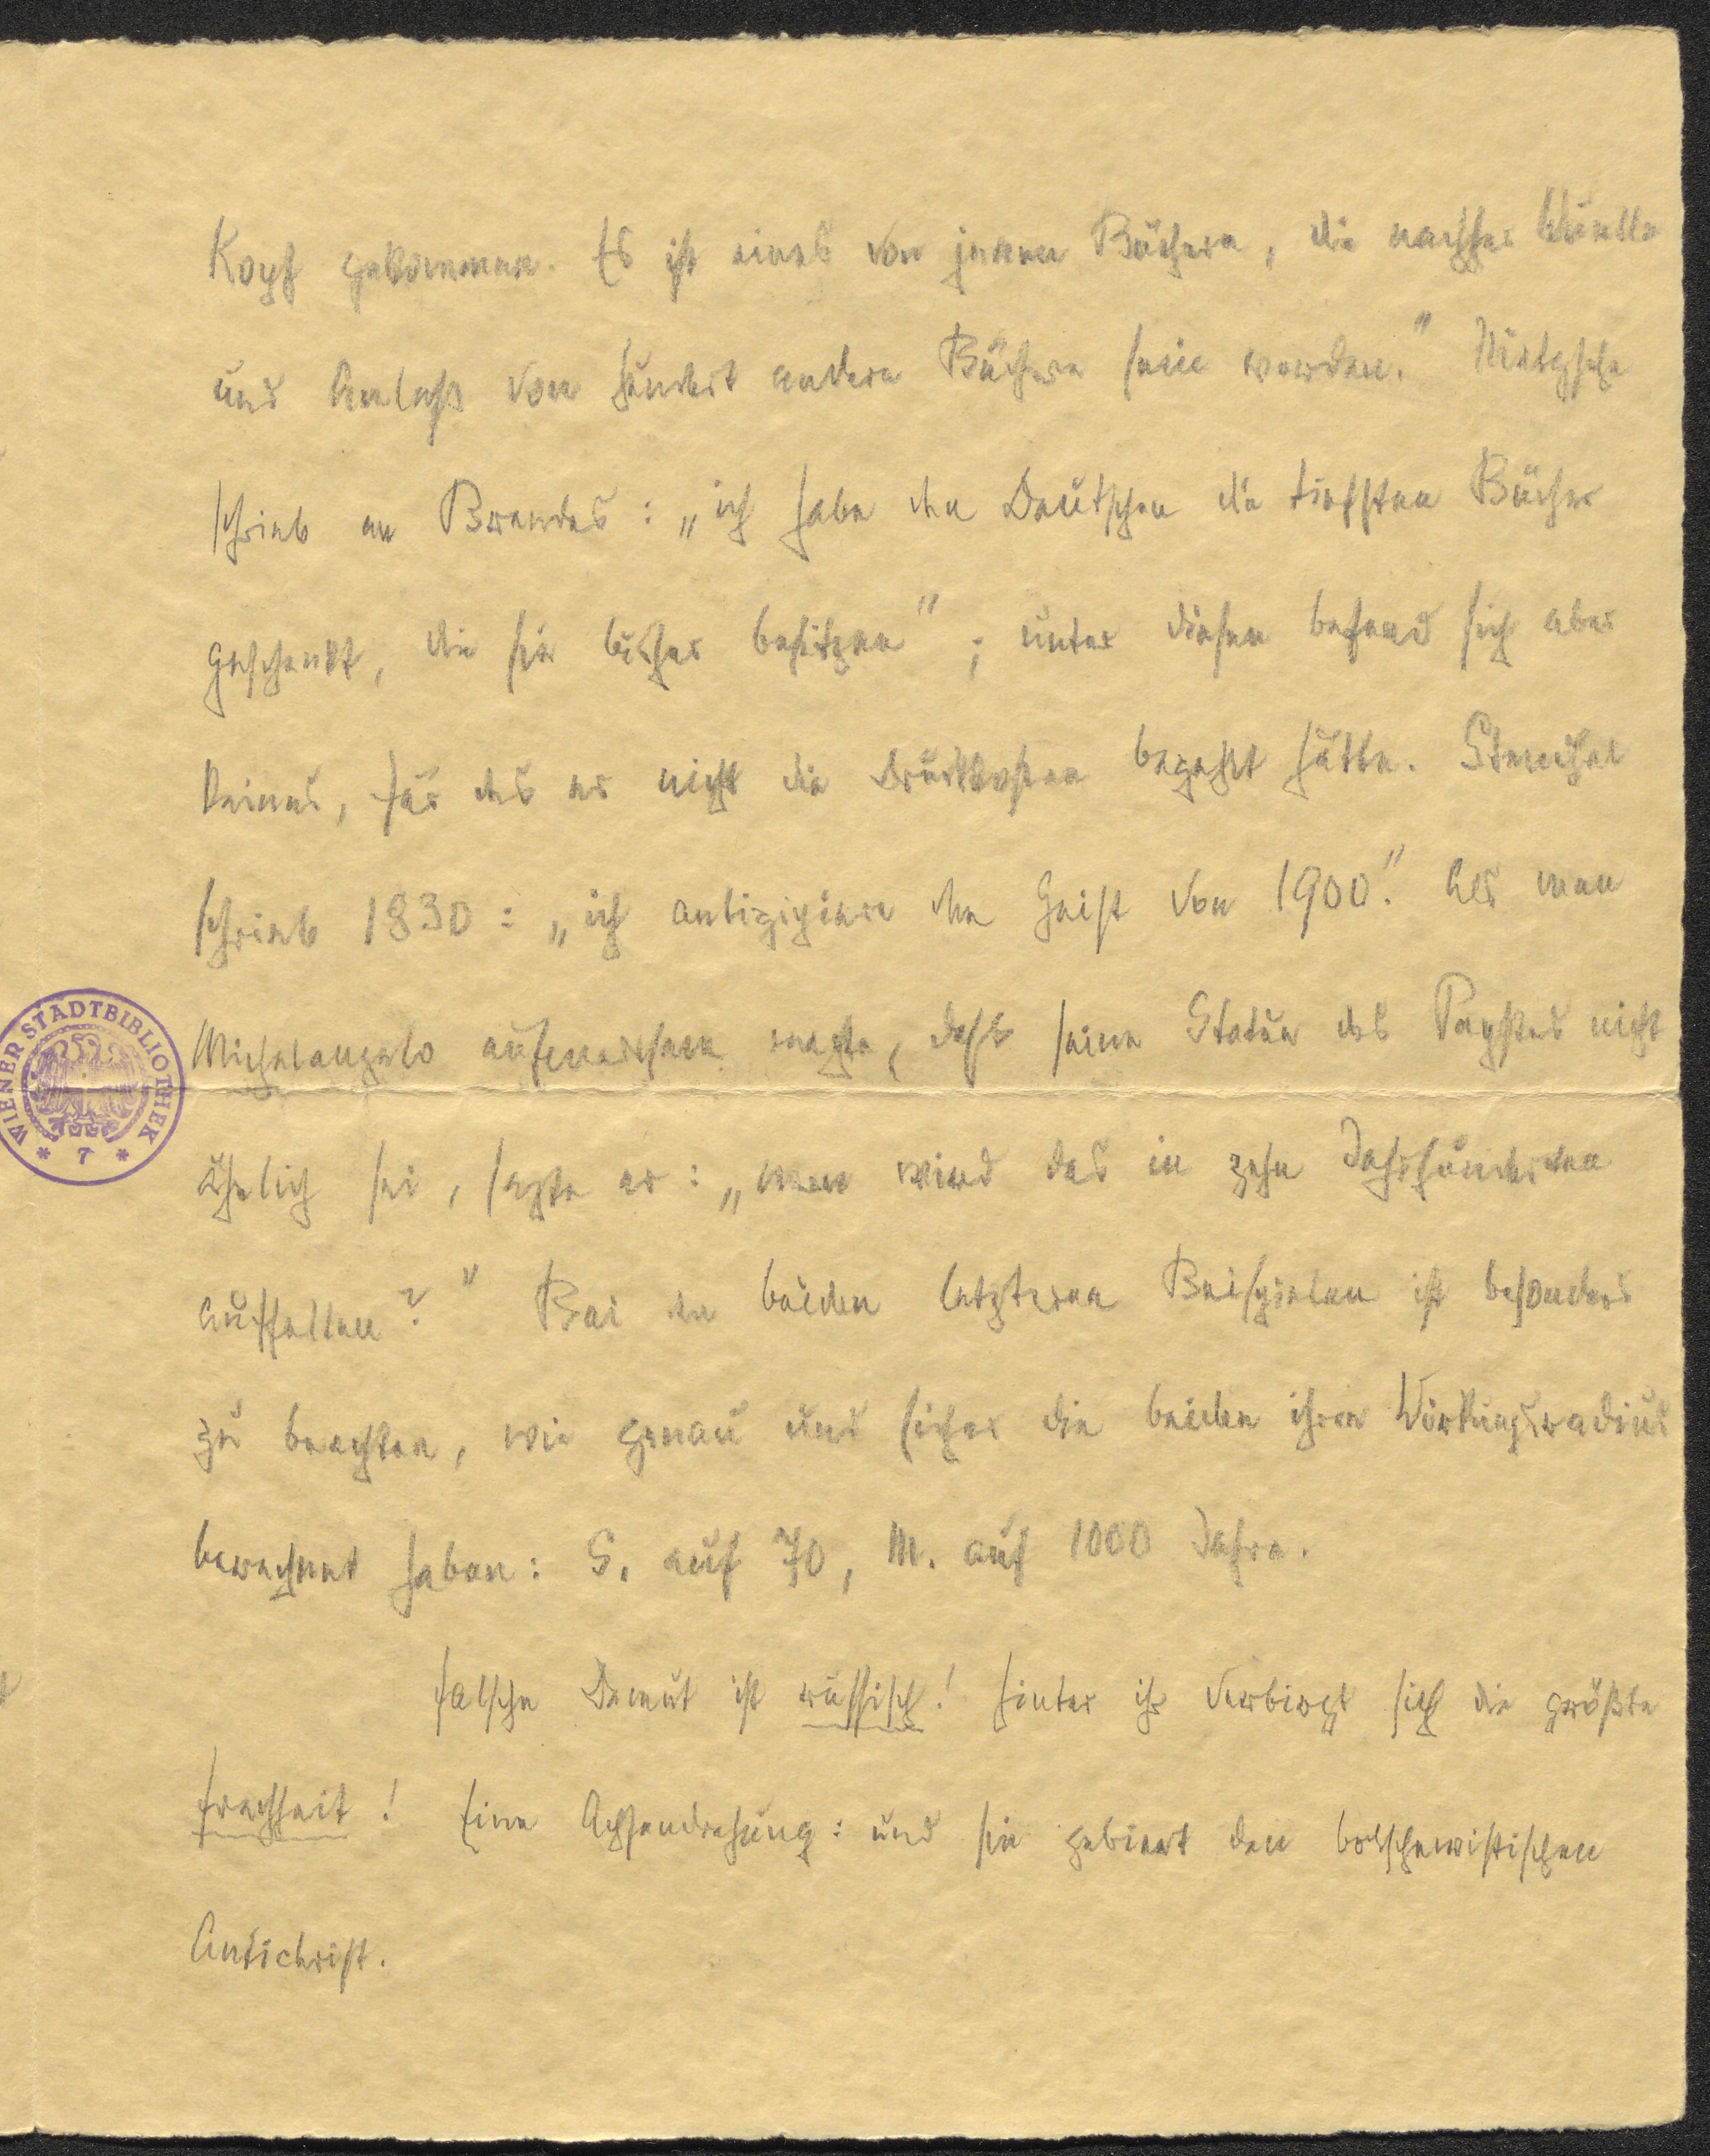 Kopf gekommen. Es ist eines von jenen Büchern, die nachher Quelle
und Anlaß von hundert andern Büchern sein werden." Nietzsche
schrieb an Brandes: „ich habe den Deutschen die tiefsten Bücher
geschenkt, die sie bisher besitzen"; unter diesen befand sich aber
keines, für das er nicht die Druckkosten bezahlt hätte. Stendhal
schrieb 1830: „ich antizipiere den Geist von 1900." Als man
Michelangelo aufmerksam machte, daß seine Statue des Papstes nicht
ähnlich sei, sagte er: „wem wird das in zehn Jahrhunderten
auffallen?" Bei den beiden letzteren Beispielen ist besonders
zu beachten, wie genau und sicher die beiden ihren Wirkungsradius
berechnet haben: S. auf 70, M. auf 1000 Jahre.
Falsche Demut ist russisch! Hinter ihr verbirgt sich die größte
Frechheit! Eine Achsendrehung: und sie gebiert den bolschewistischen
Antichrist.
WIENER STADTBIBLIOTHEK
* 7 *